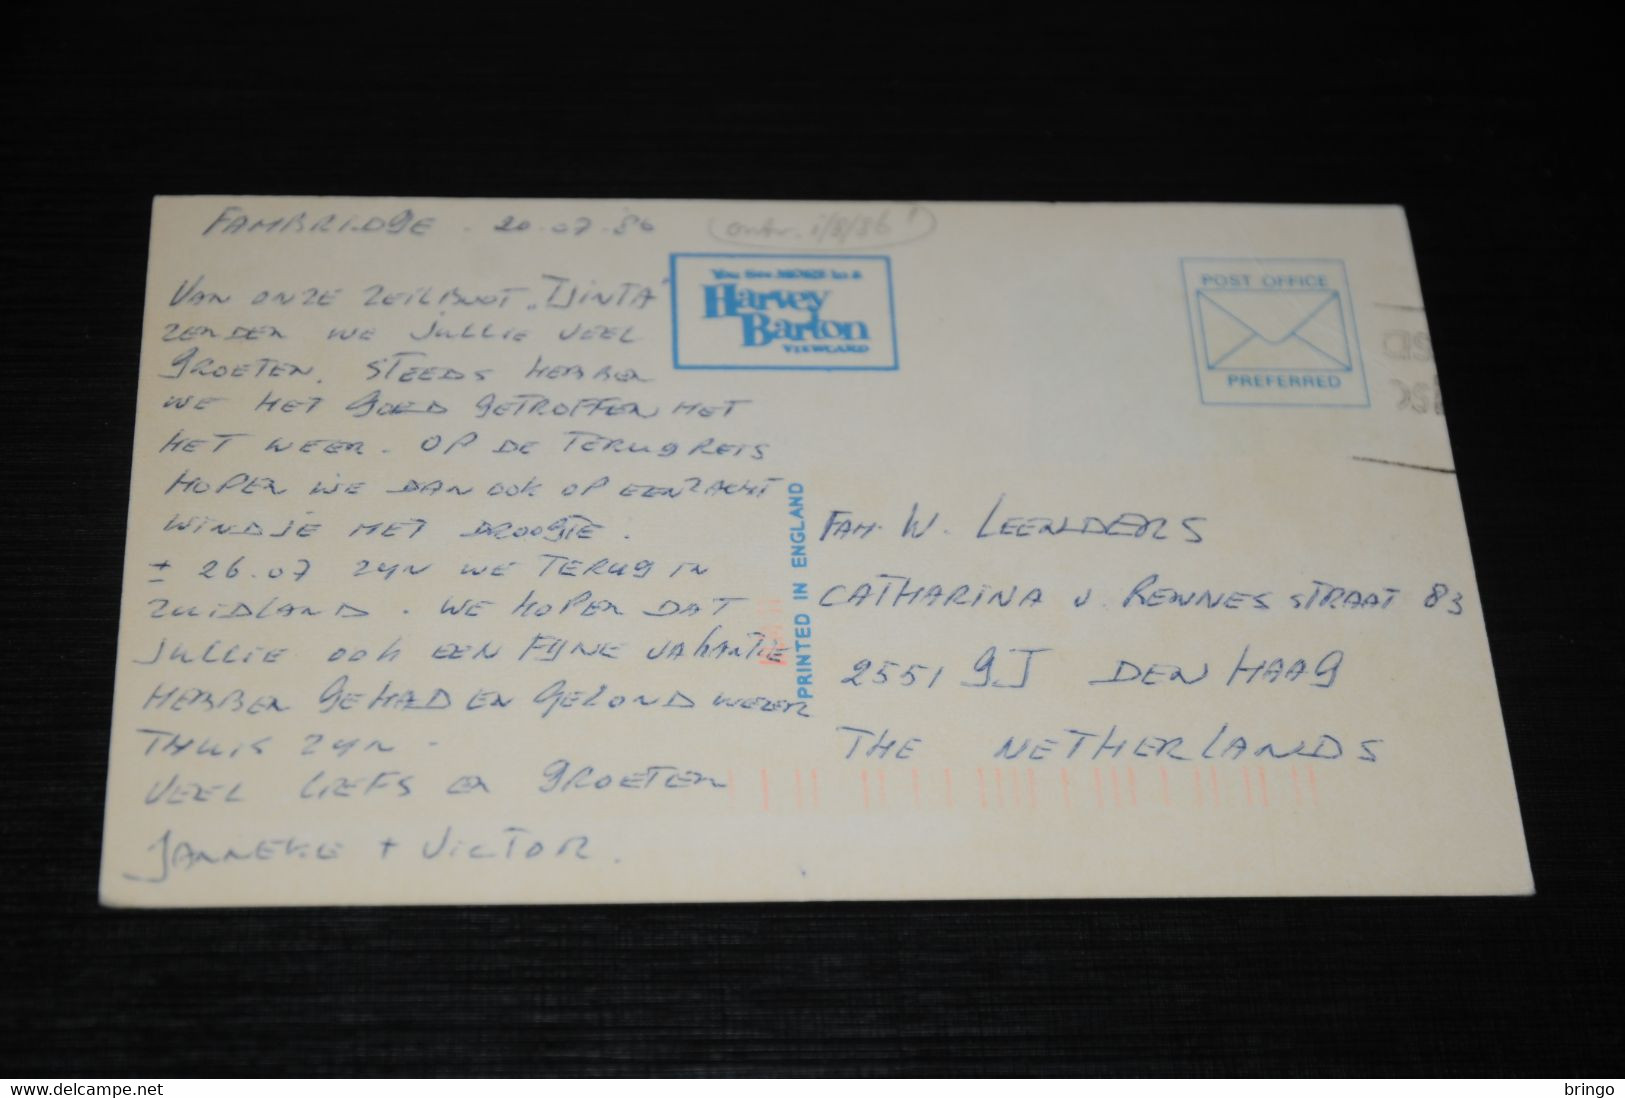 FAMBRIDGE . 20.07.86
(ontv. 1/8/86 !)
VAN ONZE ZEILBOOT "TJINTA"
ZENDEN WE JULLIE VEEL
GROETEN. STEEDS HEBBEN
WE HET GOED GETROFFEN MET
HET WEER. OP DE TERUGREIS
HOPEN WE DAN OOK OP EEN ZACHT
WINDJE MET DROOGTE.
± 26.07 ZYN WE TERUG IN
ZUIDLAND. WE HOPEN DAT
JULLIE OOK EEN FYNE VAKANTIE
HEBBEN GEHAD EN GEZOND WEER
THUIS ZYN.
VEEL LIEFS EN GROETEN
JANNEKE + VICTOR.
You See MORE in a
Harvey
Barton
VIEWCARD
POST OFFICE
PREFERRED
PRINTED IN ENGLAND
FAM. W. LEENDERS
CATHARINA V. RENNES STRAAT 83
2551 GJ DEN HAAG
THE NETHERLANDS
delcampe.net
bringo